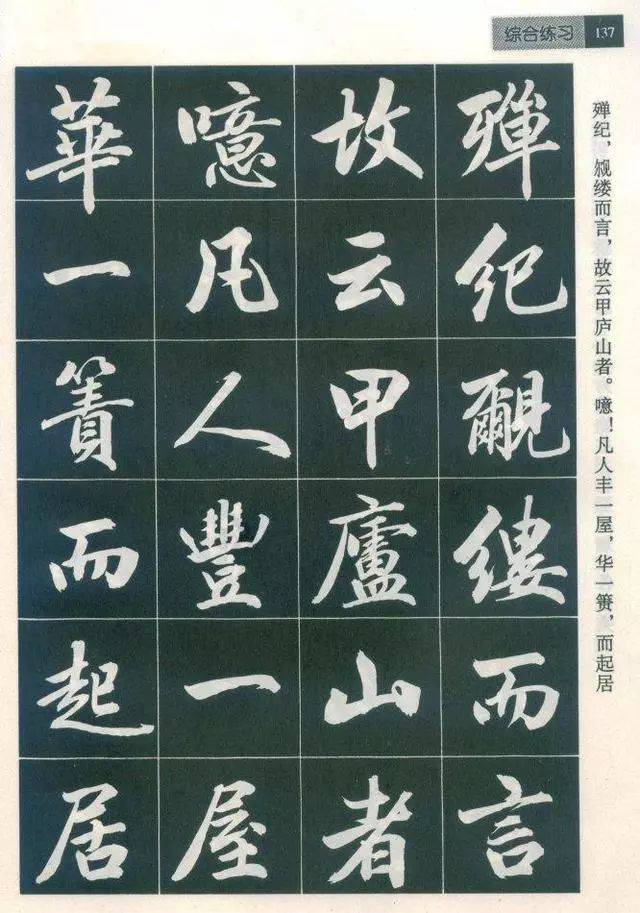 综合练习 137
殫紀覼縷而言
故云甲廬山者
噫凡人豐一屋
華一簣而起居
殚纪，覙缕而言，故云甲庐山者。噫！凡人丰一屋，华一箦，而起居